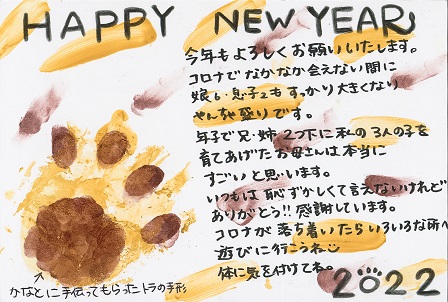 HAPPY NEW YEAR
今年もよろしくお願いいたします。
コロナでなかなか会えない間に
娘も息子2もすっかり大きくなり
やんちゃ盛りです。
年子で兄・姉 2つ下に私の3人の子を
育てあげたお母さんは本当に
すごいと思います。
いつもは恥ずかしくて言えないけれど
ありがとう!! 感謝しています。
コロナが落ち着いたらいろいろな所へ
遊びに行こうね
体に気を付けてね。
かなとに手伝ってもらったトラの手形
2022